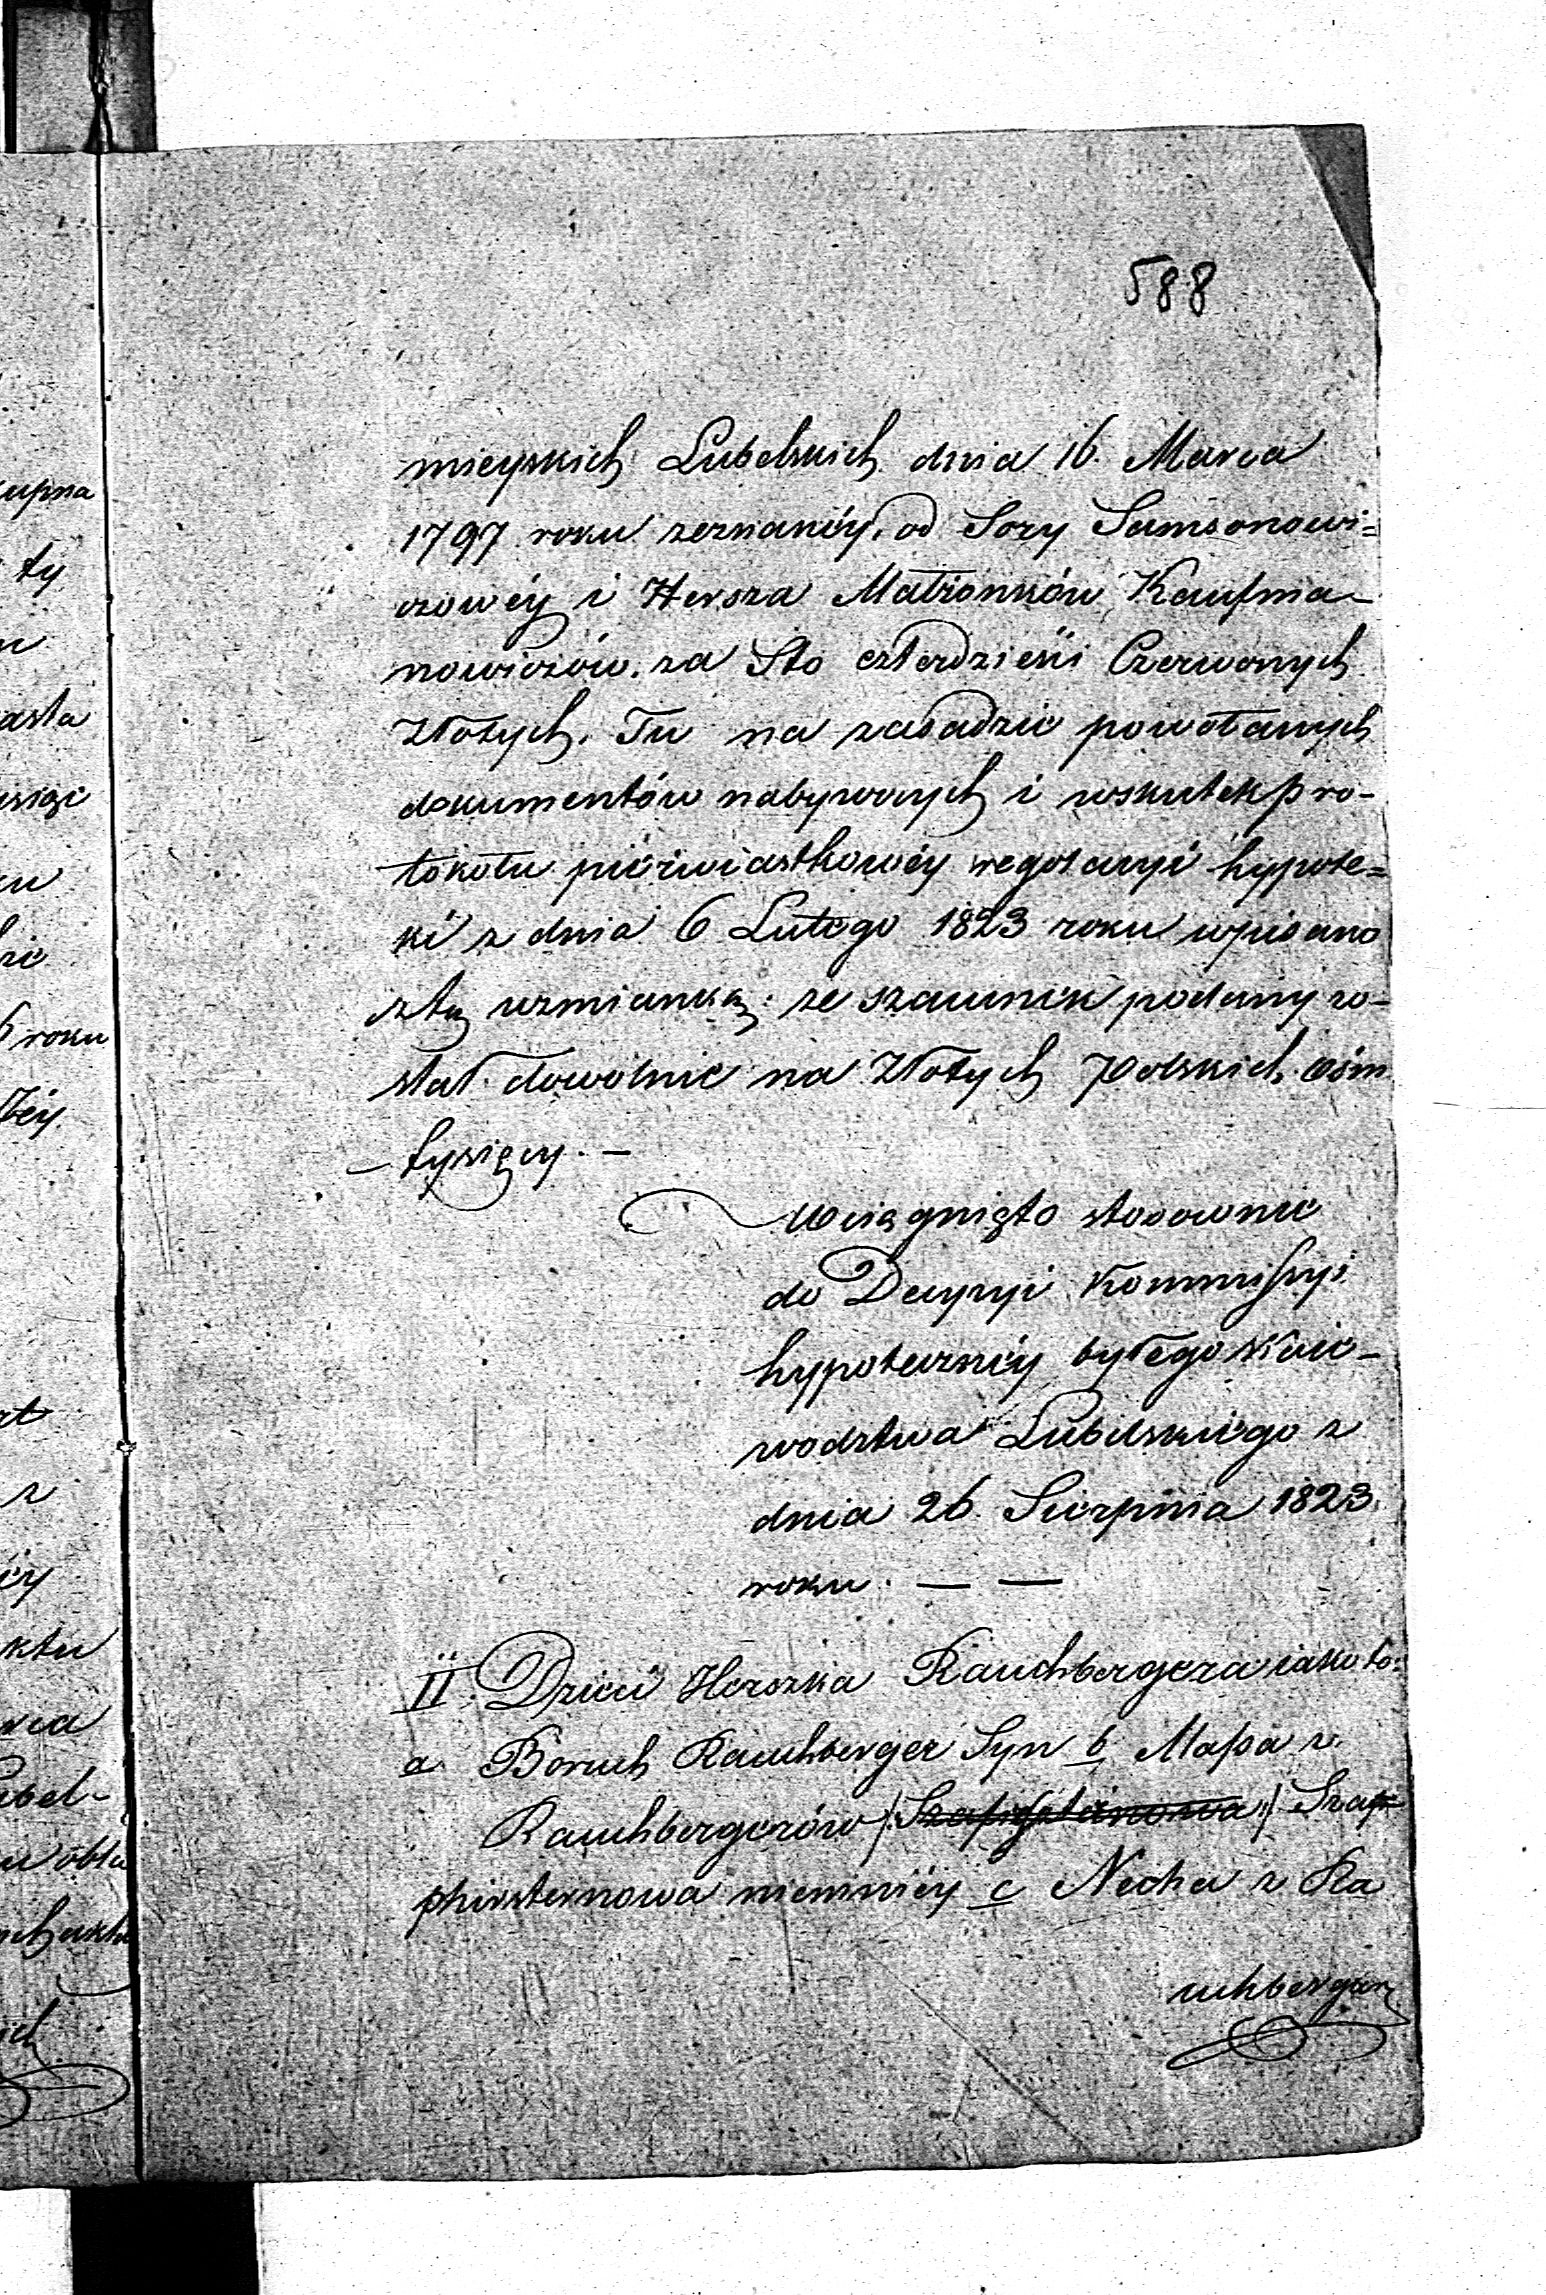 588
mieyskich Lubelskich dnia 16. Marca
1797 roku zeznanéy, od Sory Samsonowi=
czowéy i Hersza Małżonków Kaufma-
nowiczów. za Sto czterdzieści Czerwonych
Złotych. Tu na zasadzie powołanych
dokumentów nabywczych i wskutek pro-
tokołu pierwiastkowéy regulacyi hypote=
ki z dnia 6 Lutego 1823 roku wpisano
z tą wzmianką; że szacunek podany zo-
stał dowolnie na Złotych Polskich ośm
- tysięcy. -
Wciągnięto stosownie
do Decyzyi Kommissyi
hypotecznéy byłego Woie-
wodztwa Lubelskiego z
dnia 26. Sierpnia 1823
roku. — —
II. Dzieci Herszka Rauchbergera iako to:
a Boruch Rauchberger Syn b Massa z
Rauchbergerów / / Szap
phirsternowa niemniéy c Necha z Ra
uchberger
kupna
ty
asta
roku
éy
ktu
ubel-